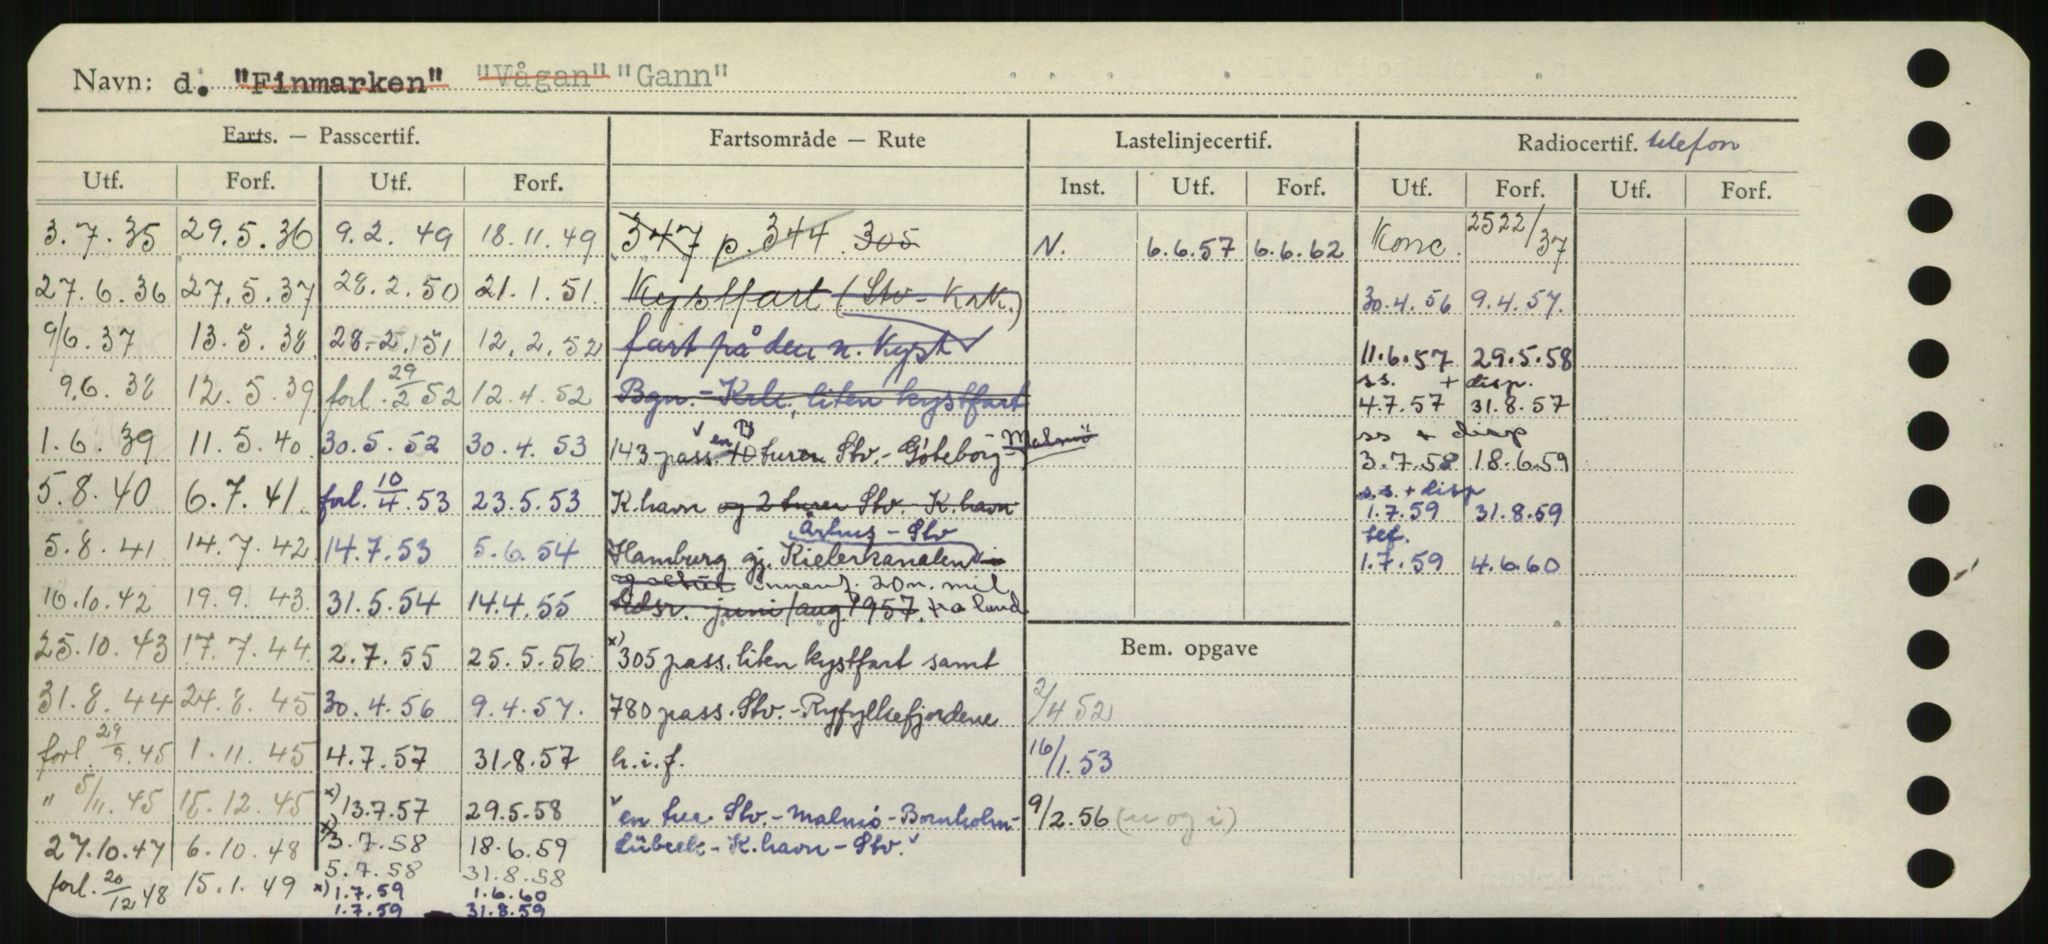 Navn: d. "Finmarken" "Vågan" "Gann"
Farts. — Passcertif. Fartsområde — Rute Lastelinjecertif. Radiocertif. telefon
Utf. Forf. Utf. Forf. Inst. Utf. Forf. Utf. Forf. Utf. Forf.
3.7.35 29.5.36 9.2.49 18.11.49 347 p. 344. 305 N. 6.6.57 6.6.62 Konc. 2522/37
27.6.36 27.5.37 28.2.50 21.1.51 Kystfart (Stv - Krk.) 30.4.56 9.4.57.
9/6.37 13.5.38 28.2.51 12.2.52 fart på den n. Kyst 11.6.57 29.5.58
9.6.38 12.5.39 forl. 29/2 52 12.4.52 Bgn. - Krk., liten kystfart ss. + disp. 4.7.57 31.8.57
1.6.39 11.5.40 30.5.52 30.4.53 143 pass. en turen Stv. - Göteborg - Malmö ss + disp 3.7.58 18.6.59
5.8.40 6.7.41 forl. 10/4.53 23.5.53 K.havn og 2 turer Stv. K.havn s.s. + disp 1.7.59 31.8.59
Århus - Stv
5.8.41 14.7.42 14.7.53 5.6.54 Hamburg gj. Kielerkanalen tef. 1.7.59 4.6.60
innenf. 20 n. mil
16.10.42 19.9.43. 31.5.54 14.4.55 juni/aug 1957. fra land
25.10.43 17.7.44 2.7.55 25.5.56 x) 305 pass. liten kystfart samt Bem. opgave
31.8.44 24.8.45 30.4.56 9.4.57. 780 pass. Stv. - Ryfylkefjordene 2/4 52
forl. 29/9.45 1.11.45 4.7.57 31.8.57 h.i.f. 16/1.53
" 5/11.45 15.12.45 x) 13.7.57 29.5.58 en tur Stv. - Malmö - Bornholm - 9/2.56 (u og i)
27.10.47 6.10.48 x) 3.7.58 18.6.59 Lübeck - K.havn - Stv.
5.7.58 31.8.58
forl. 20/12 48 15.1.49 x) 1.7.59 1.6.60
1.7.59 31.8.59